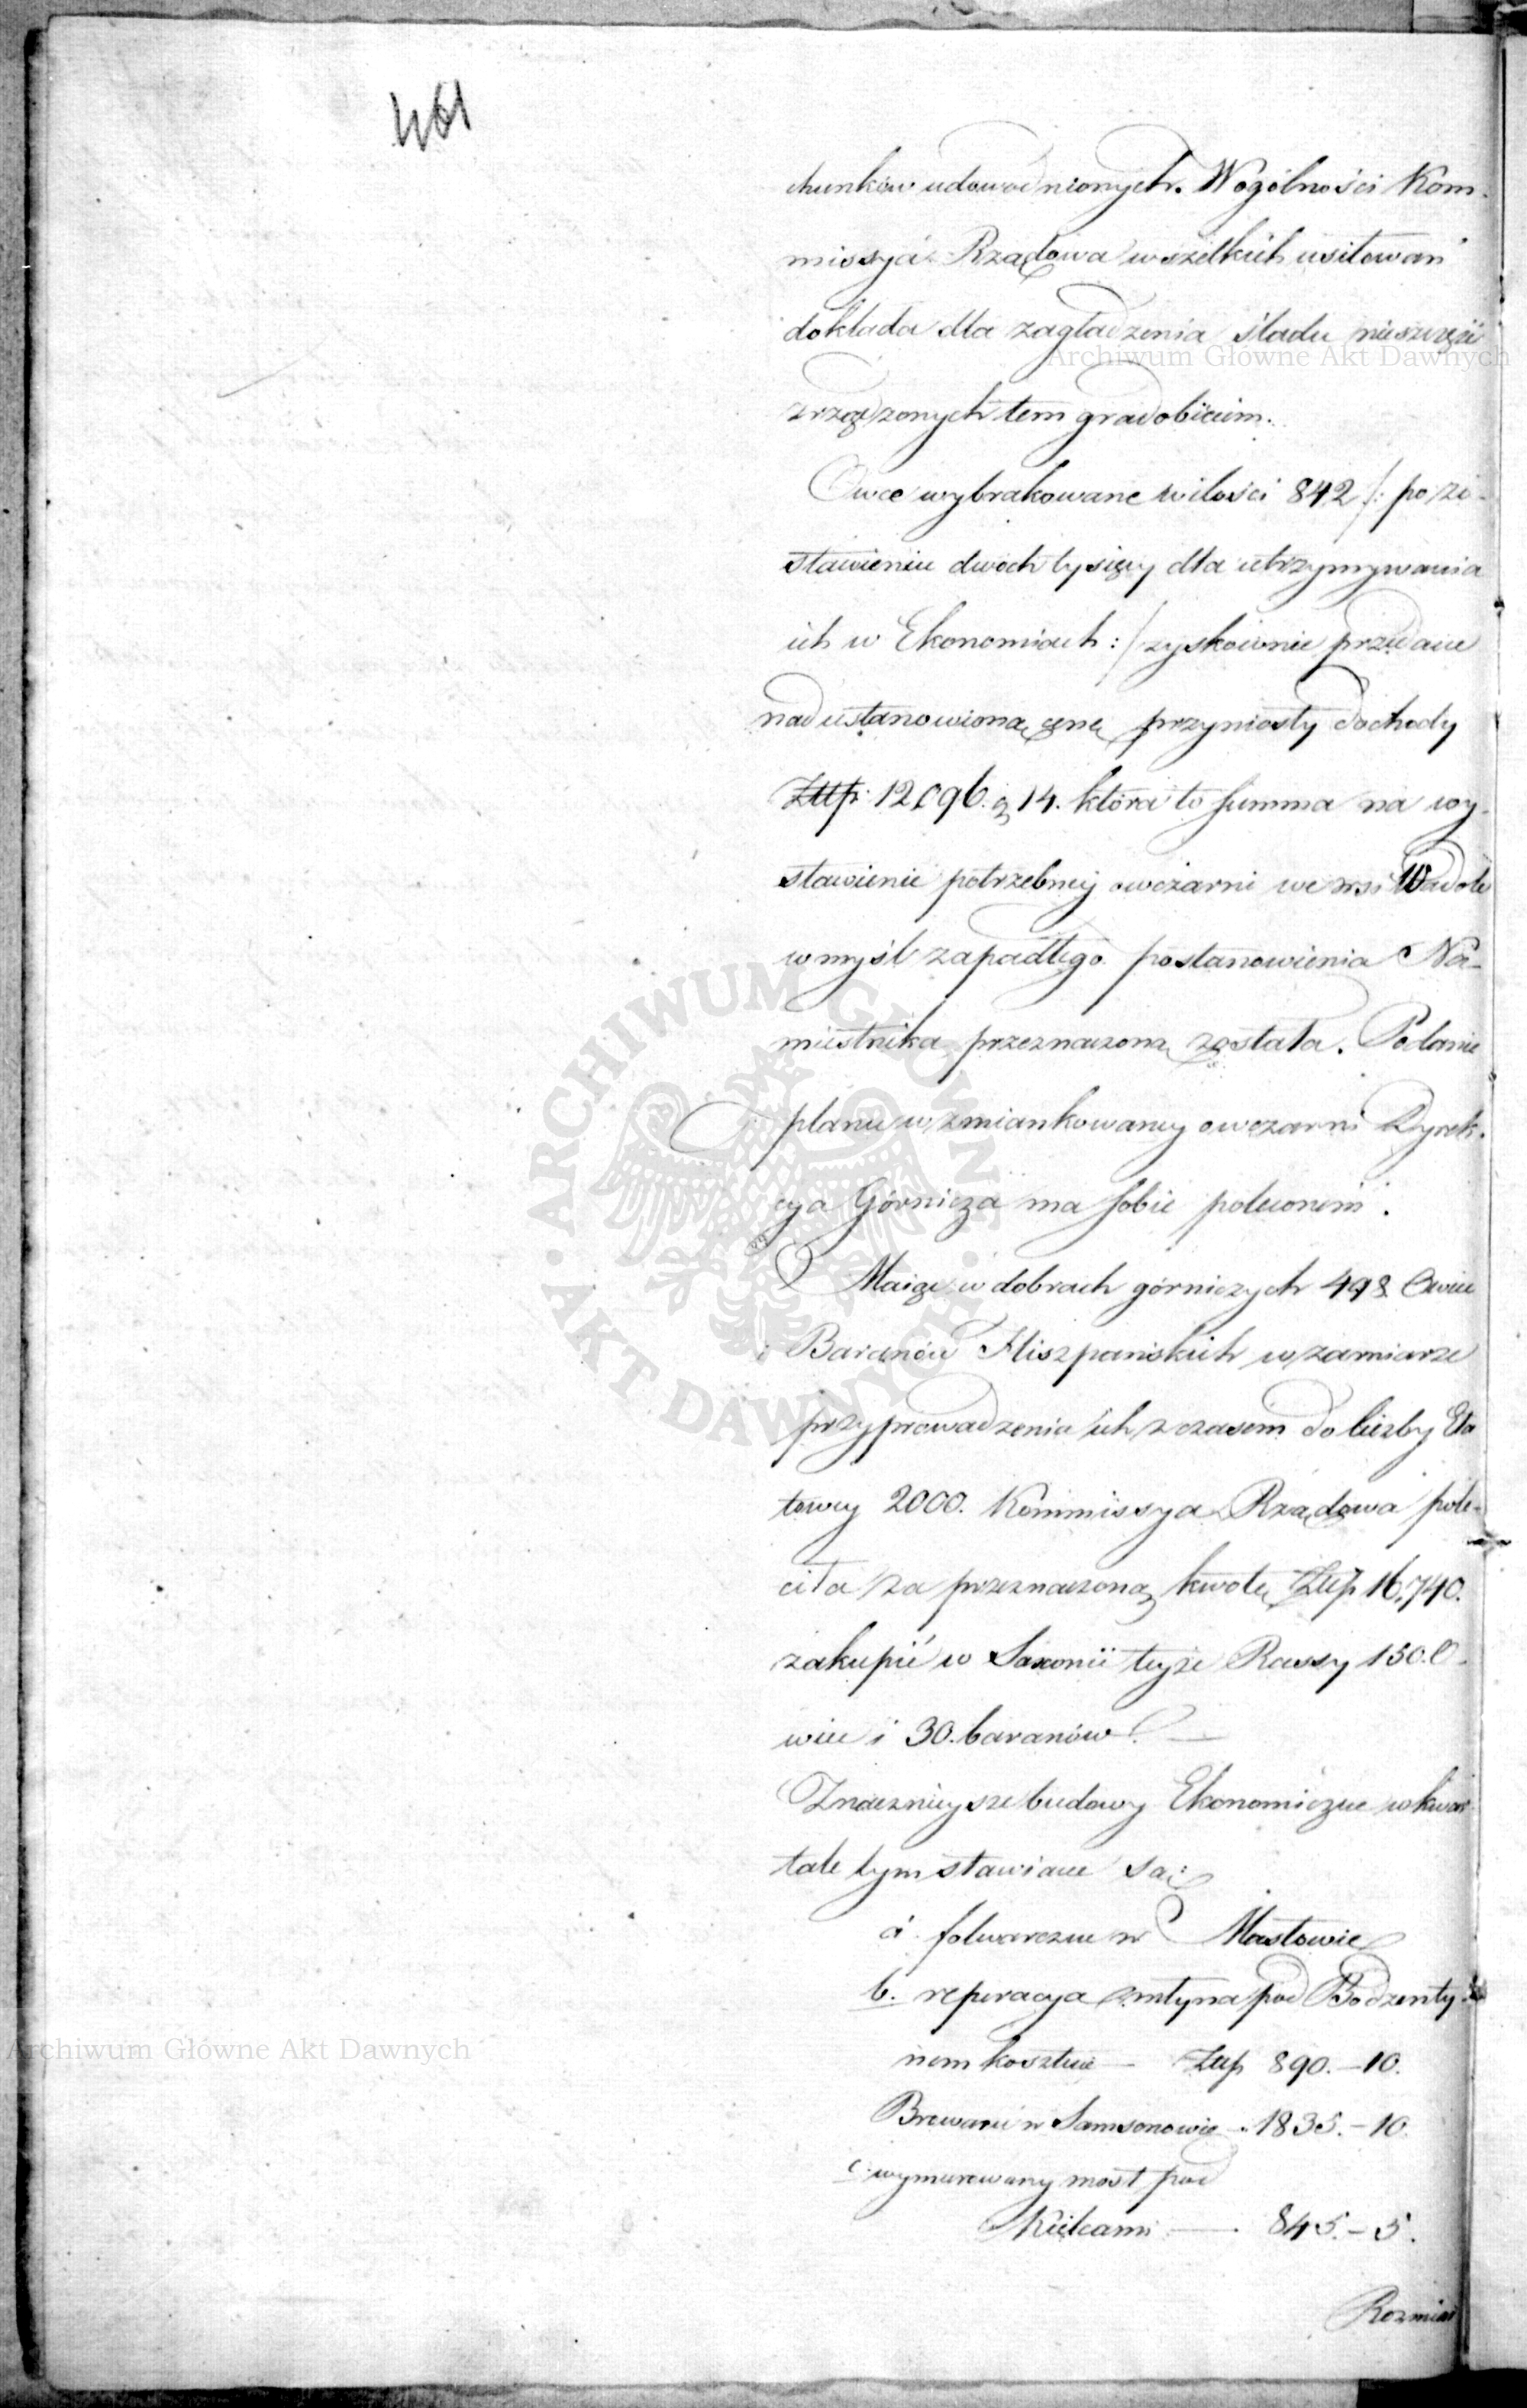 461
chunków udowodnionych. Wogólności Kom-
missya Rządowa wszelkich usiłowań
dokłada dla zagładzenia śladu nieszczęść
zrządzonych tem gradobiciem.
Owce wybrakowane wilości 842 /: po zo-
stawieniu dwóch tysięcy dla utrzymywania
ich w Ekonomiach :/ zyskownie przedane
nad ustanowioną cenę przyniosły dochody
Złtp. 12,096. g. 14. która to summa na wy-
stawienie potrzebney owczarni we wsi
w myśl zapadłego postanowienia Na-
miestnika przeznaczoną została. Podanie
planu wzmiankowaney owczarni Dyrek-
cya Górnicza ma sobie poleconem.
Maiąc w dobrach górniczych 498 Owiec
i Baranów Hiszpańskich w zamiarze
przyprowadzenia ich z czasem do liczby Eta
towey 2000. Kommissya Rządowa pole-
ciła za przeznaczoną kwotę Złtp 16,740.
zakupić w Saxonii teyże Rassy 150. O-
wiec i 30. baranów.
Znacznieysze budowy Ekonomiczne w kwar-
tale tym stawiane są:
a. folwarczne w Masłowie
b. reperacya młyna pod Bodzenty-
nem kosztuie — Złtp 890. - 10.
Browaru w Samsonowie - 1835. - 10.
c. wymurowany most pod
Kielcami — 845. - 5.
Rozmiar
Archiwum Główne Akt Dawnych
Archiwum Główne Akt Dawnych
ARCHIWUM GŁÓWNE AKT DAWNYCH